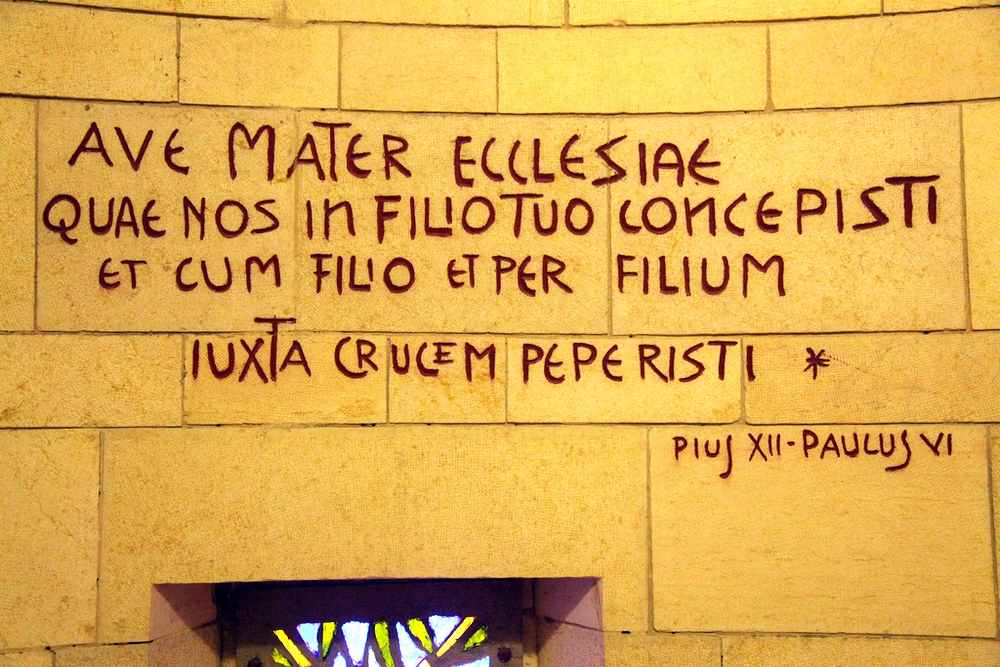 AVE MATER ECCLESIAE
QUAE NOS IN FILIO TUO CONCEPISTI
ET CUM FILIO ET PER FILIUM
IUXTA CRUCEM PEPERISTI *
PIUS XII - PAULUS VI